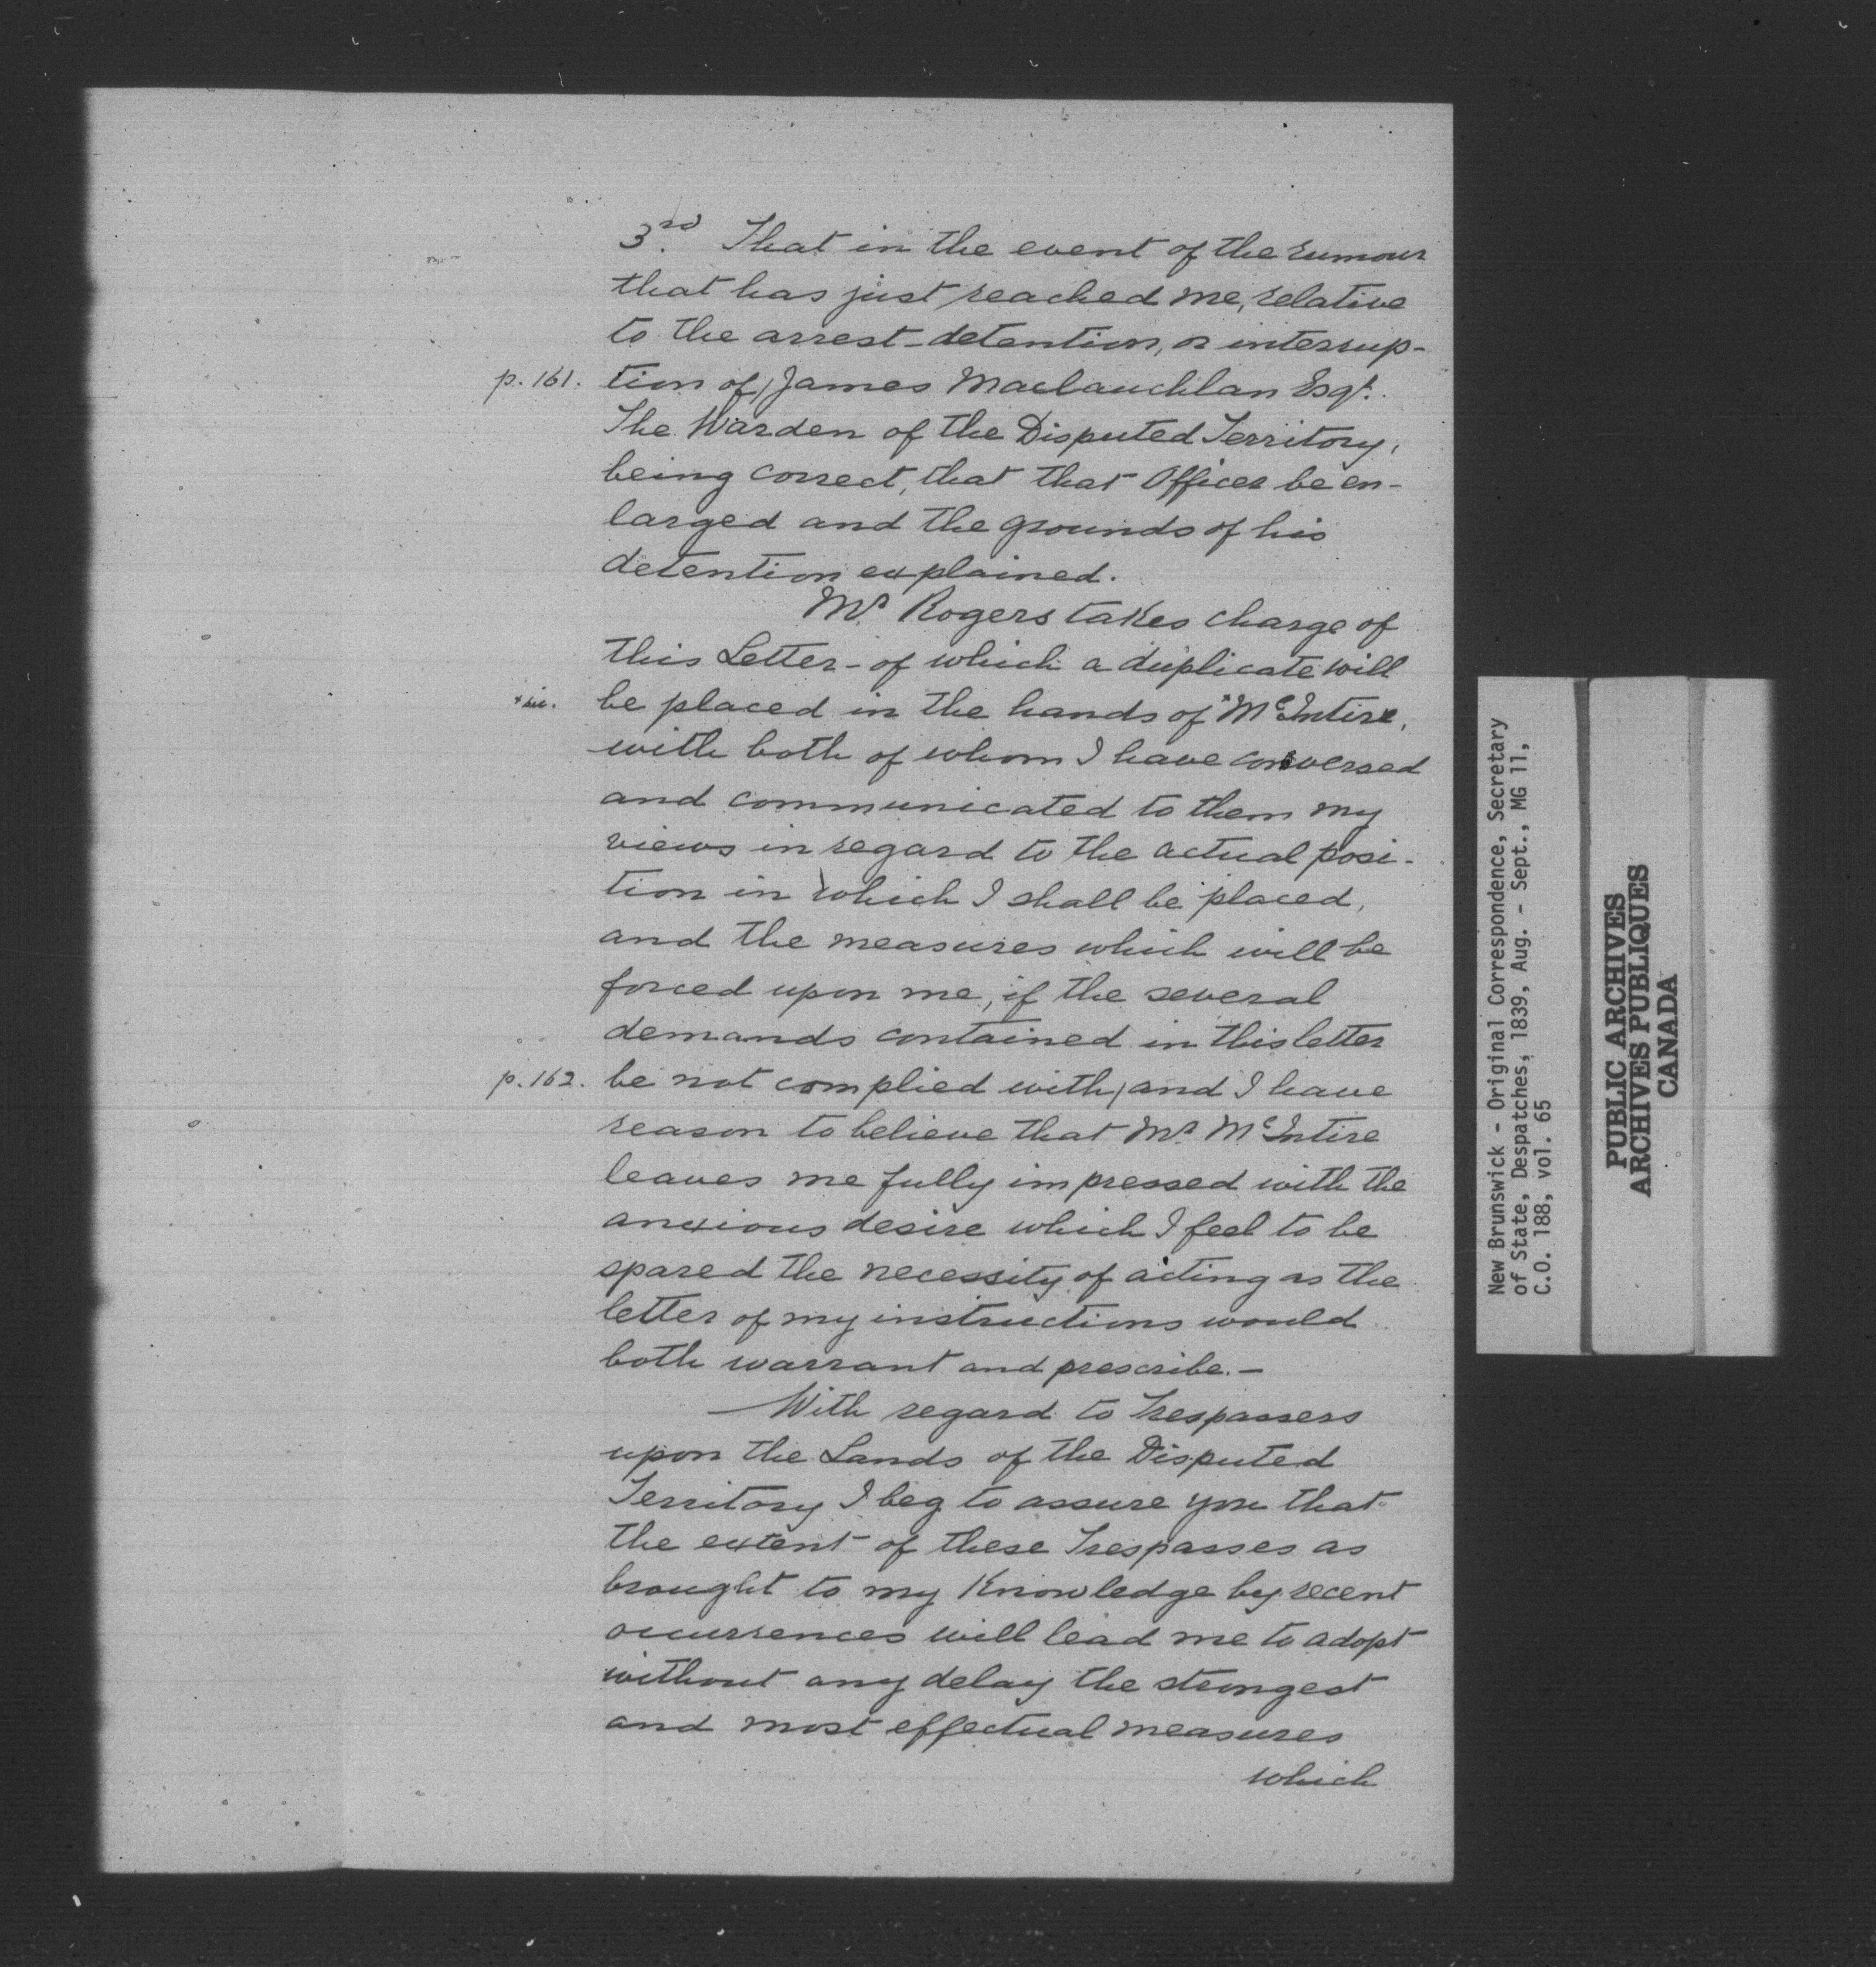 3rd. That in the event of the rumour
that has just reached me, relative
to the arrest - detention, or interrup-
p. 161. tion of / James Maclauchlan Esqr.
The Warden of the Disputed Territory,
being correct, that that Officer be en-
larged and the grounds of his
detention explained.
Mr. Rogers takes charge of
this Letter - of which a duplicate will
* sic. be placed in the hands of * McIntire,
with both of whom I have conversed
and communicated to them my
views in regard to the actual posi-
tion in which I shall be placed,
and the measures which will be
forced upon me, if the several
demands contained in this letter
p. 162. be not complied with, / and I have
reason to believe that Mr McIntire
leaves me fully impressed with the
anxious desire which I feel to be
spared the necessity of acting as the
letter of my instructions would
both warrant and prescribe. -
With regard to Trespassers
upon the Lands of the Disputed
Territory I beg to assure you that
the extent of these Trespasses as
brought to my Knowledge by recent
occurrences will lead me to adopt
without any delay the strongest
and most effectual measures
which
New Brunswick - Original Correspondence, Secretary
of State, Despatches, 1839, Aug. - Sept., MG 11,
C.O. 188, vol. 65
PUBLIC ARCHIVES
ARCHIVES PUBLIQUES
CANADA